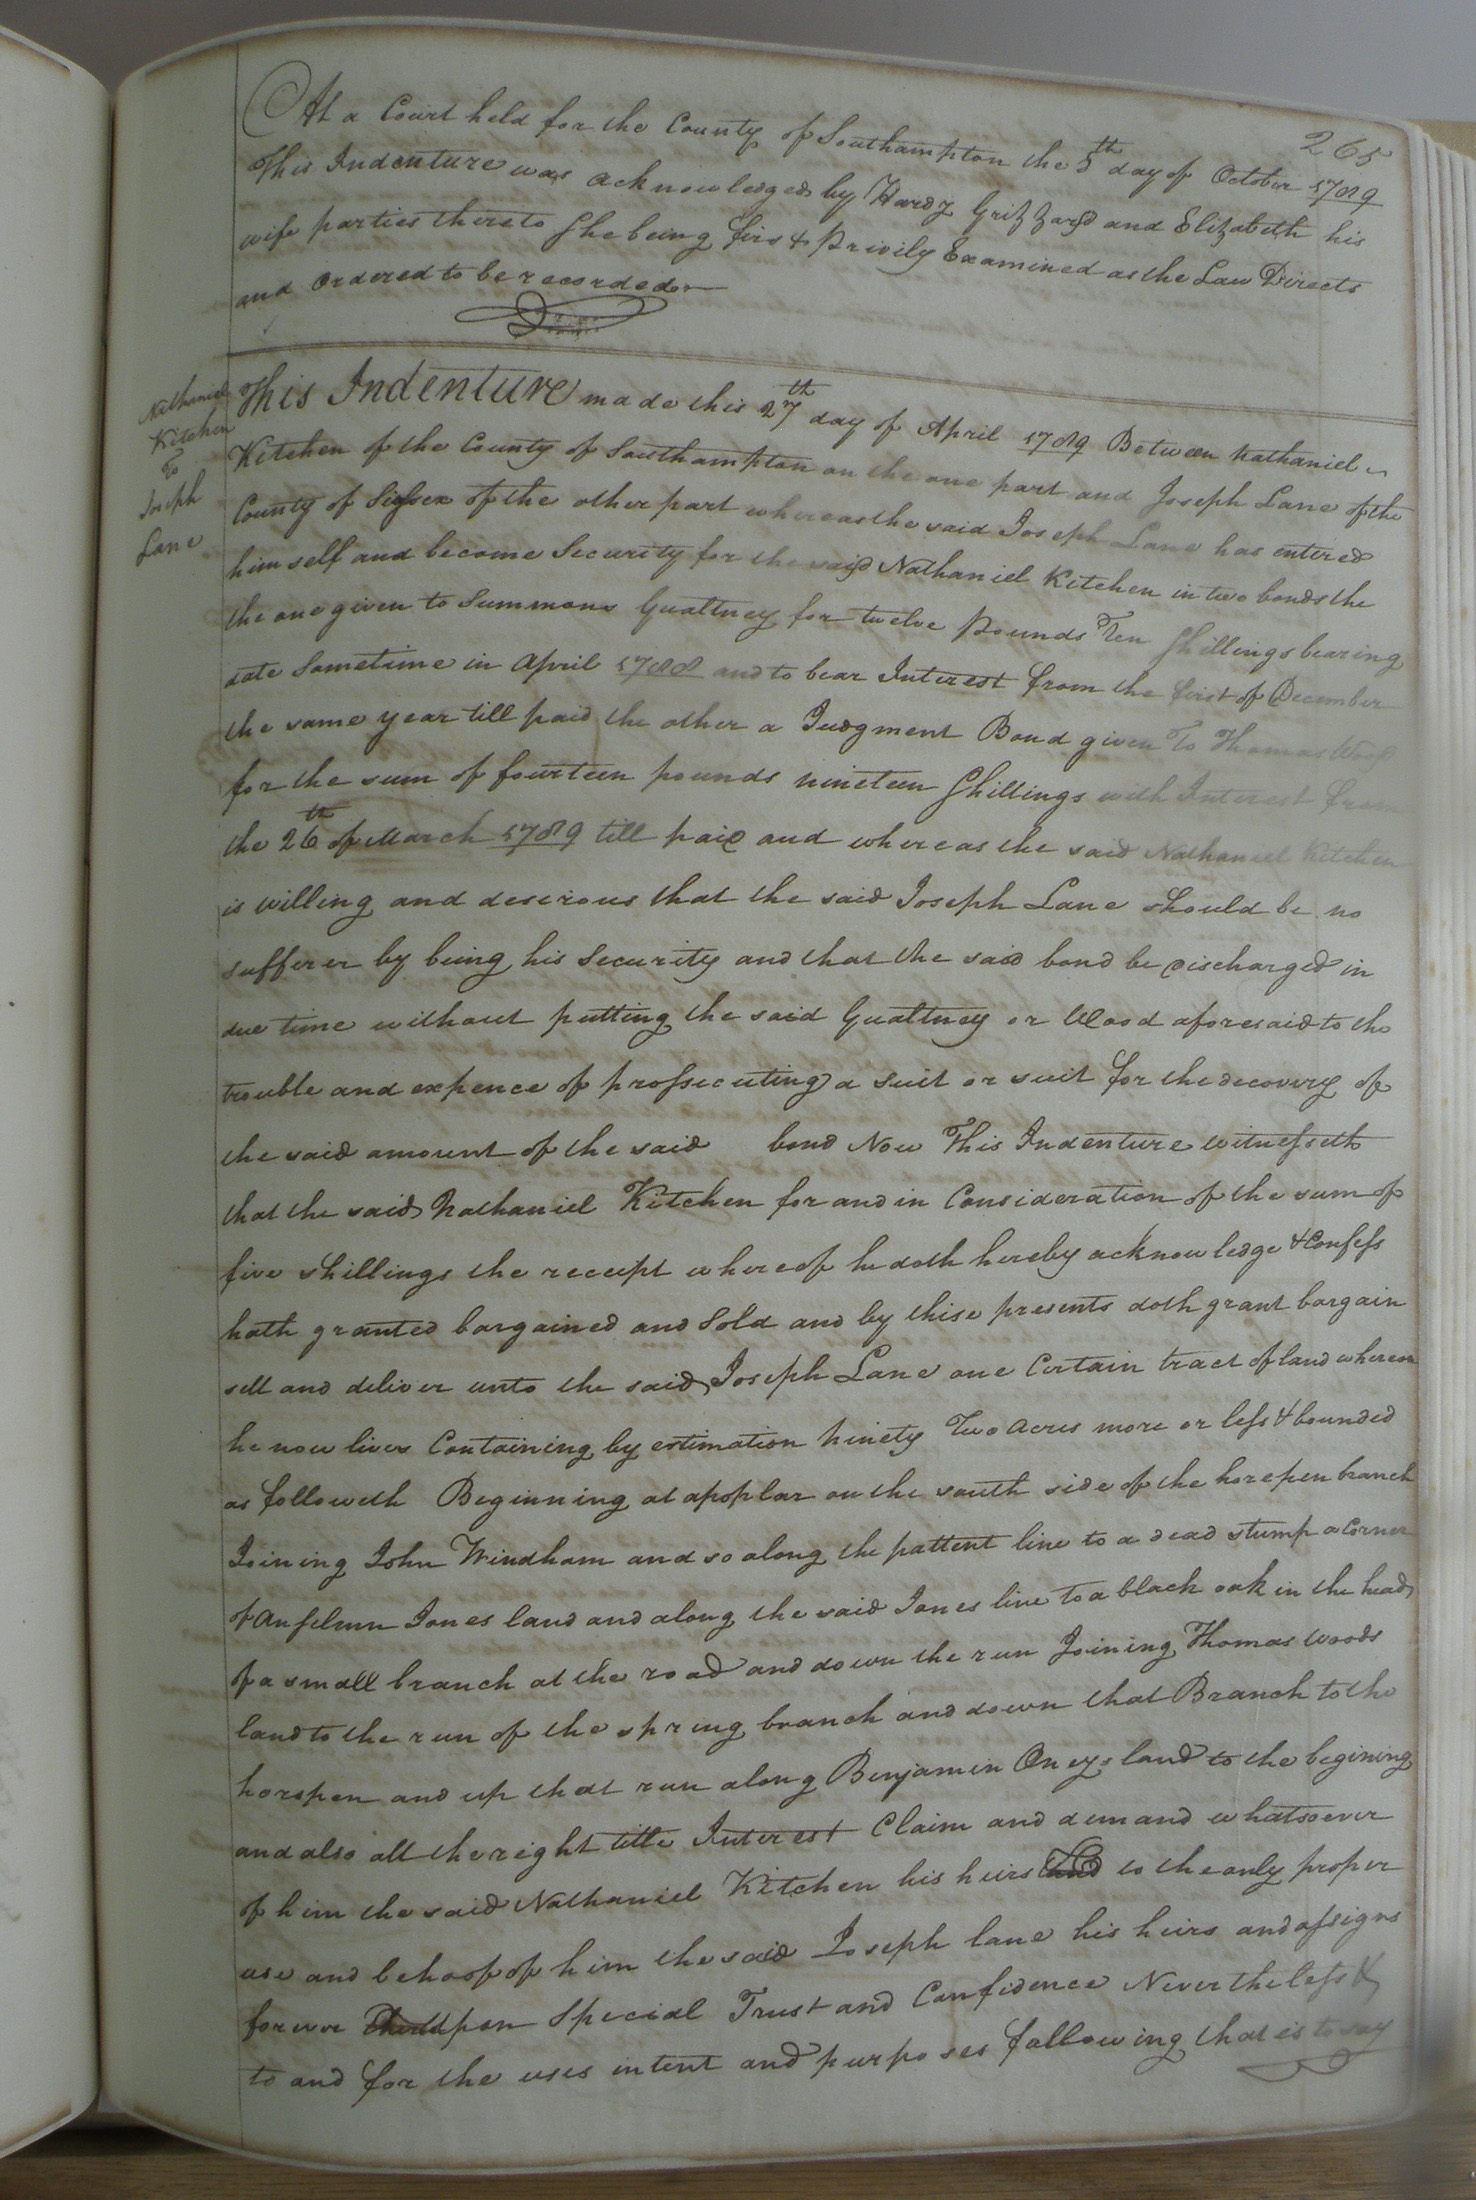 265
At a Court held for the County of Southampton the 8th day of October 1789
This Indenture was acknowledged by Hardy Grizzard and Elizabeth his
wife parties thereto She being first Privily Examined as the Law Directs
and Ordered to be recorded
Nathaniel
Kitchen
To
Joseph
Lane
This Indenture made this 27th day of April 1789 Between Nathaniel
Kitchen of the County of Southampton on the one part and Joseph Lane of the
County of Sussex of the other part whereas the said Joseph Lane has entered
himself and become Security for the said Nathaniel Kitchen in two bonds the
the one given to Summons Gualtney for twelve Pounds Ten Shillings bearing
date Sometime in April 1788 and to bear Interest from the first of December
the same year till paid the other a Judgment Bond given To Thomas Wood
for the sum of fourteen pounds nineteen Shillings with Interest from
the 26th of March 1789 till paid and whereas the said Nathaniel Kitchen
is willing and desirous that the said Joseph Lane should be no
sufferer by being his Security and that the said bond be discharged in
due time without putting the said Gualtney or Wood aforesaid to the
trouble and expence of prossecuting a suit or suit for the recovery of
the said amount of the said bond Now This Indenture witnesseth
that the said Nathaniel Kitchen for and in Consideration of the sum of
five shillings the receipt whereof he doth hereby acknowledge & Confess
hath granted bargained and Sold and by thise presents doth grant bargain
sell and deliver unto the said Joseph Lane one Certain tract of land whereon
he now lives Containing by estimation ninety Two acres more or less & bounded
as followeth Beginning at a poplar on the south side of the horepen branch
Joining John Windham and so along the pattent line to a dead stump a Corner
of Anselmn Jones land and along the said Jones line to a black oak in the head
of a small branch at the road and down the run Joining Thomas Woods
land to the run of the spring branch and down that Branch to the
horspen and up that run along Benjamin Oneys land to the begining
and also all the right title Interest Claim and demand whatsoever
of him the said Nathaniel Kitchen his heirs to the only proper
use and behoof of him the said Joseph lane his heirs and assigns
forever upon Special Trust and Confidence Nevertheless &
to and for the uses intent and purposes following that is to say